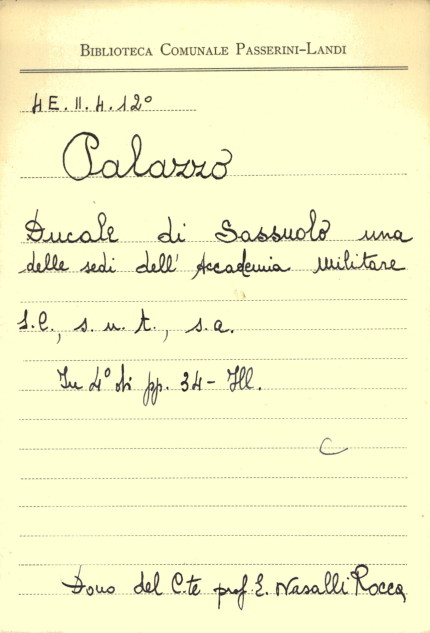 BIBLIOTECA COMUNALE PASSERINI-LANDI
4E.II.4.12°
Palazzo
Ducale di Sassuolo una
delle sedi dell'Accademia Militare
S.l., s.n.t., s.a.
In 4° di pp. 34 - Ill.
C
Dono del C.te prof. E. Nasalli Rocca